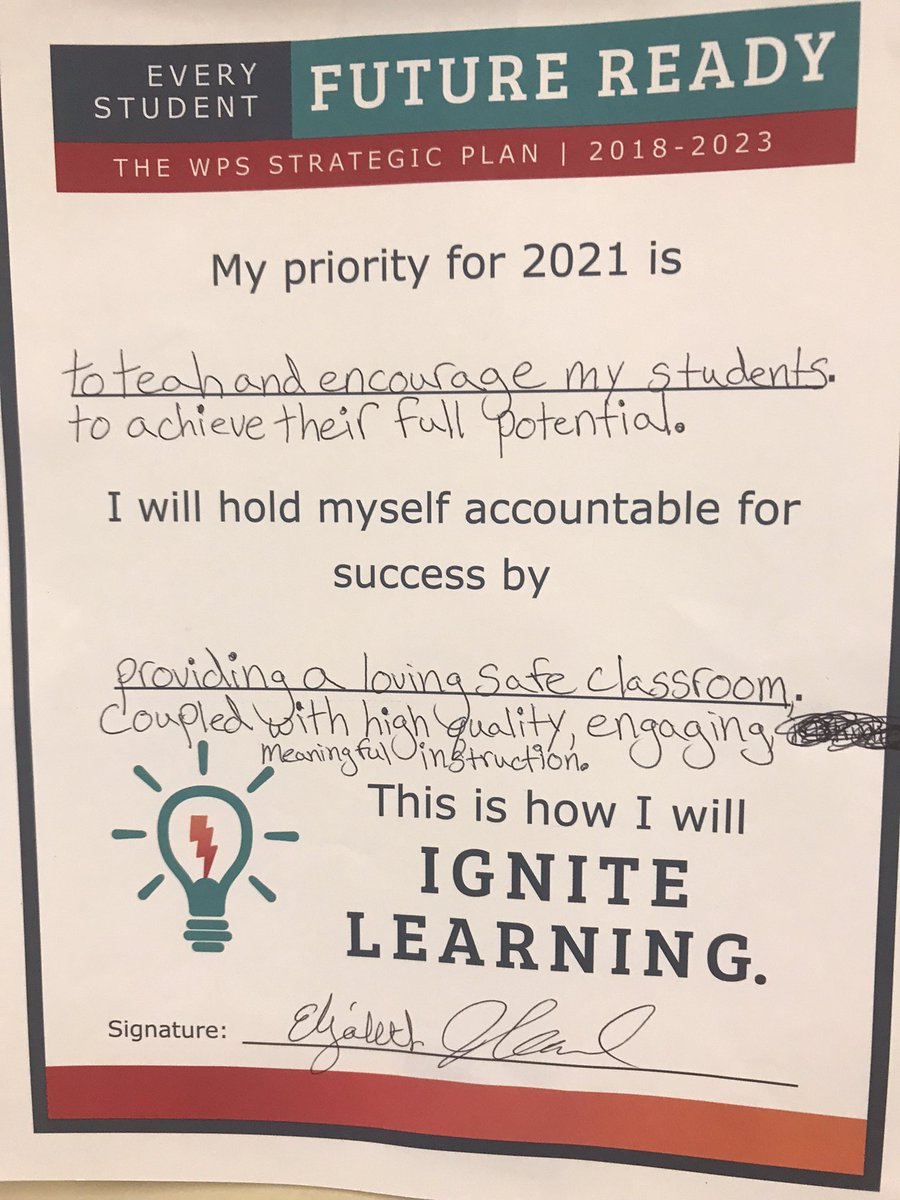 EVERY
STUDENT
FUTURE READY
THE WPS STRATEGIC PLAN | 2018-2023
My priority for 2021 is
to teah and encourage my students.
to achieve their full potential.
I will hold myself accountable for
success by
providing a loving safe classroom,
coupled with high quality, engaging,
meaningful instruction.
This is how I will
IGNITE
LEARNING.
Signature: Elizabeth